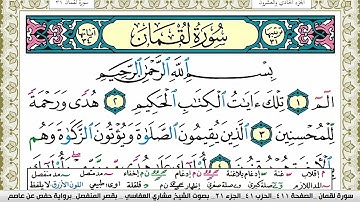 الجزء الحادي والعشرون
سورة لقمان ٣١
سُورَةُ لُقْمَان
بِسْمِ ٱللَّهِ ٱلرَّحْمَٰنِ ٱلرَّحِيمِ
الٓمٓ ١ تِلْكَ ءَايَٰتُ ٱلْكِتَٰبِ ٱلْحَكِيمِ ٢ هُدًى وَرَحْمَةً
لِّلْمُحْسِنِينَ ٣ ٱلَّذِينَ يُقِيمُونَ ٱلصَّلَوٰةَ وَيُؤْتُونَ ٱلزَّكَوٰةَ وَهُم
سورة لقمان - الصفحة ٤١١ - الحزب ٤١ - الجزء ٢١ - بصوت الشيخ مشاري العفاسي - بقصر المنفصل - برواية حفص عن عاصم